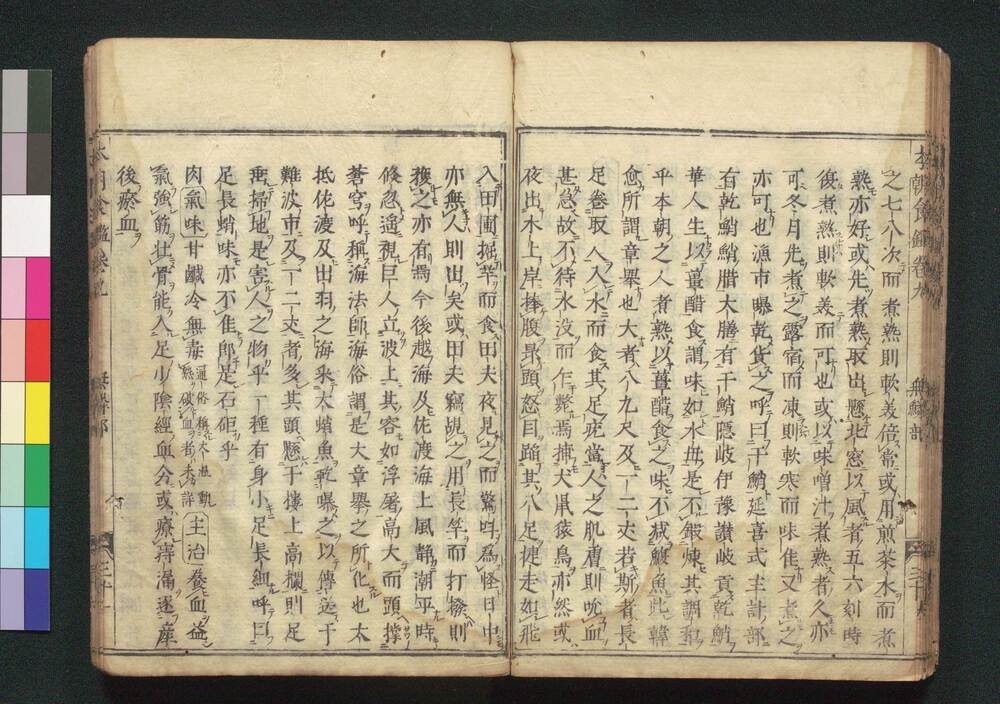 本朝食鑑卷九
無鱗部
三十
之七八次而煮熟則軟美倍常或用煎茶水而煮
熟亦好或先煮熟取出懸北窓以風者五六刻時
復煮熟則軟美而可也或以味噌汁煮熟者久亦
可冬月先煮之露宿而凍則軟寒而味佳又煮之
亦可也漁市曝乾貨之呼曰干鮹延喜式主計部
有乾鮹鮹腊大膳有干鮹隠岐伊豫讃岐貢乾鮹
華人生以薑醋食謂味如水母是不鍛煉其調和
乎本朝之人者熟以薑醋食之味不減鰒魚此韓
愈所謂章舉也大者八九尺及一二丈若斯者長
足卷取人入水而食其足疣當人之肌膚則吮血
甚急故不待水没而乍斃焉捕犬鼠猿鳥亦然或
夜出水上岸捧腹昻頭怒目踏其八足捷走如飛
入田圃掘芋而食田夫夜見之而驚呼為怪日中
亦無人則出矣或田夫竊覘之用長竿而打撩則
獲之亦有焉今後越海及佐渡海上風静潮平時
倏忽遥視巨人立波上其容如浮屠高大而頭撑
蒼穹呼稱海法師海俗謂是大章舉之所化也太
抵佐渡及出羽之海采大蛸魚乾曝之以傳送于
難波市及一二丈者多其頭懸于樓上高欄則足
垂掃地是害人之物乎一種有身小足長細呼曰
足長蛸味亦不佳郎是石矩乎
肉氣味甘鹹冷無毒
主治養血益
氣強筋壯骨能入足少陰經血分或療痔漏逐産
後瘀血
本朝食鑑卷九
無鱗部
三十一